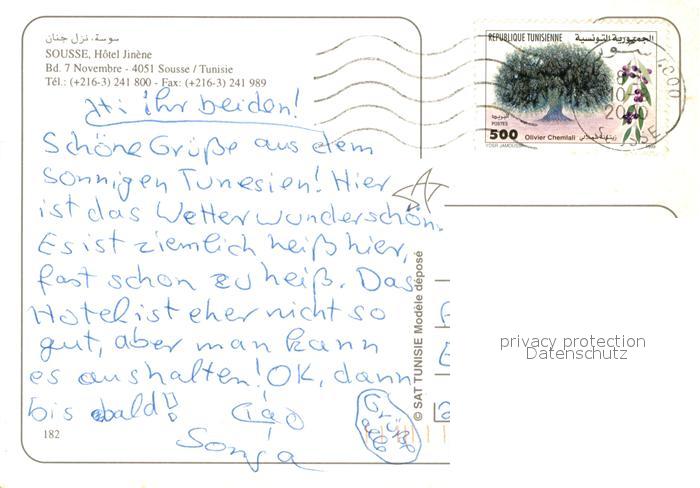 سوسة، نزل جنان
SOUSSE, Hôtel Jinène
Bd. 7 Novembre - 4051 Sousse / Tunisie
Tél.: (+216-3) 241 800 - Fax: (+216-3) 241 989
Hi ihr beiden!
Schöne Grüße aus dem
sonnigen Tunesien! Hier
ist das Wetter wunderschön.
Es ist ziemlich heiß hier,
fast schon zu heiß. Das
Hotel ist eher nicht so
gut, aber man kann
es aushalten! OK, dann
bis bald! Ciao
Sonja
182
© SAT TUNISIE Modèle déposé
REPUBLIQUE TUNISIENNE الجمهورية التونسية
POSTES
500
Olivier Chemlali
YOSR JAMOUSSI
privacy protection
Datenschutz